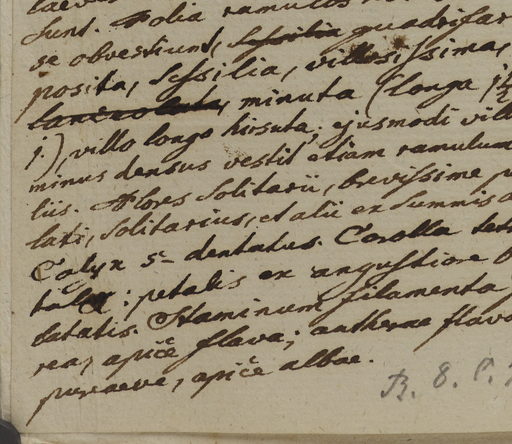 sunt. Folia ramulos
se obvestiunt, sessilia quadrifar
posita, sessilia, villosissima,
lanceolata, minuta (longa
j.), villo longo hirsuta; ejusmodi vill
minus densus vestit etiam ramulum
liis. Flores solitarii, brevissime p
lati, solitarius, et alii ex summis a
Calyx 5-dentatus. Corolla tet
tala: petalis ex angustiore
latatis. Staminum filamenta
rea, apice flava; antherae flav
pureae, apice albae.
B. 8. C.